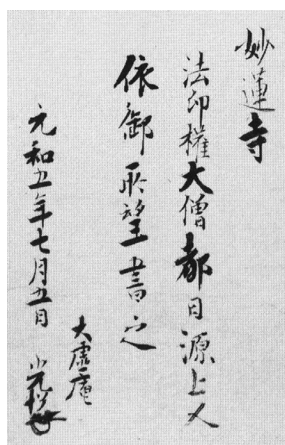 妙蓮寺
法印權大僧都日源上人
依御所望書之
元和五年七月五日
大虚庵
光悦